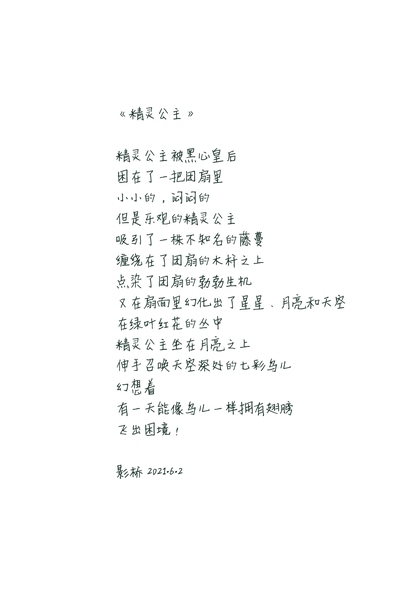 《精灵公主》
精灵公主被黑心皇后
困在了一把团扇里
小小的，闷闷的
但是乐观的精灵公主
吸引了一株不知名的藤蔓
缠绕在了团扇的木杆之上
点染了团扇的勃勃生机
又在扇面里幻化出了星星、月亮和天空
在绿叶红花的丛中
精灵公主坐在月亮之上
伸手召唤天空深处的七彩鸟儿
幻想着
有一天能像鸟儿一样拥有翅膀
飞出困境！
影桥 2021.6.2